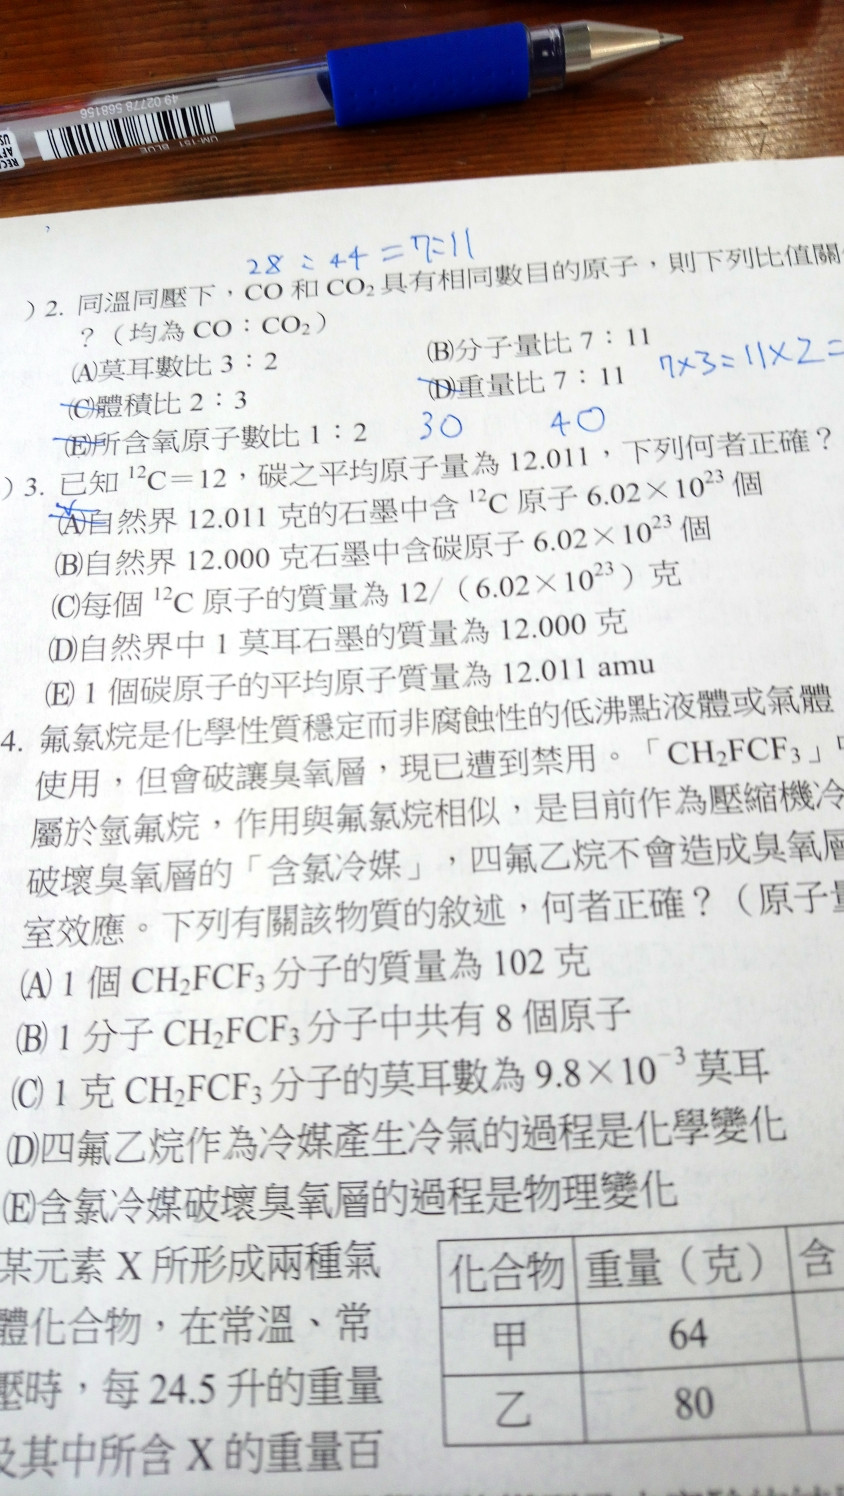 49 02778 568156
UM-151 BLUE
28:44=7:11
)2. 同溫同壓下，CO 和 CO₂ 具有相同數目的原子，則下列比值關
？（均為 CO：CO₂）
(A)莫耳數比 3：2
(B)分子量比 7：11
(C)體積比 2：3
(D)重量比 7：11
7×3=11×2=
(E)所含氧原子數比 1：2
30 40
)3. 已知 ¹²C＝12，碳之平均原子量為 12.011，下列何者正確？
(A)自然界 12.011 克的石墨中含 ¹²C 原子 6.02×10²³ 個
(B)自然界 12.000 克石墨中含碳原子 6.02×10²³ 個
(C)每個 ¹²C 原子的質量為 12/（6.02×10²³）克
(D)自然界中 1 莫耳石墨的質量為 12.000 克
(E) 1 個碳原子的平均原子質量為 12.011 amu
4. 氟氯烷是化學性質穩定而非腐蝕性的低沸點液體或氣體
使用，但會破讓臭氧層，現已遭到禁用。「CH₂FCF₃」
屬於氫氟烷，作用與氟氯烷相似，是目前作為壓縮機冷
破壞臭氧層的「含氯冷媒」，四氟乙烷不會造成臭氧層
室效應。下列有關該物質的敘述，何者正確？（原子量
(A) 1 個 CH₂FCF₃ 分子的質量為 102 克
(B) 1 分子 CH₂FCF₃ 分子中共有 8 個原子
(C) 1 克 CH₂FCF₃ 分子的莫耳數為 9.8×10⁻³ 莫耳
(D)四氟乙烷作為冷媒產生冷氣的過程是化學變化
(E)含氯冷媒破壞臭氧層的過程是物理變化
某元素 X 所形成兩種氣
體化合物，在常溫、常
壓時，每 24.5 升的重量
及其中所含 X 的重量百
化合物 重量（克） 含
甲 64
乙 80